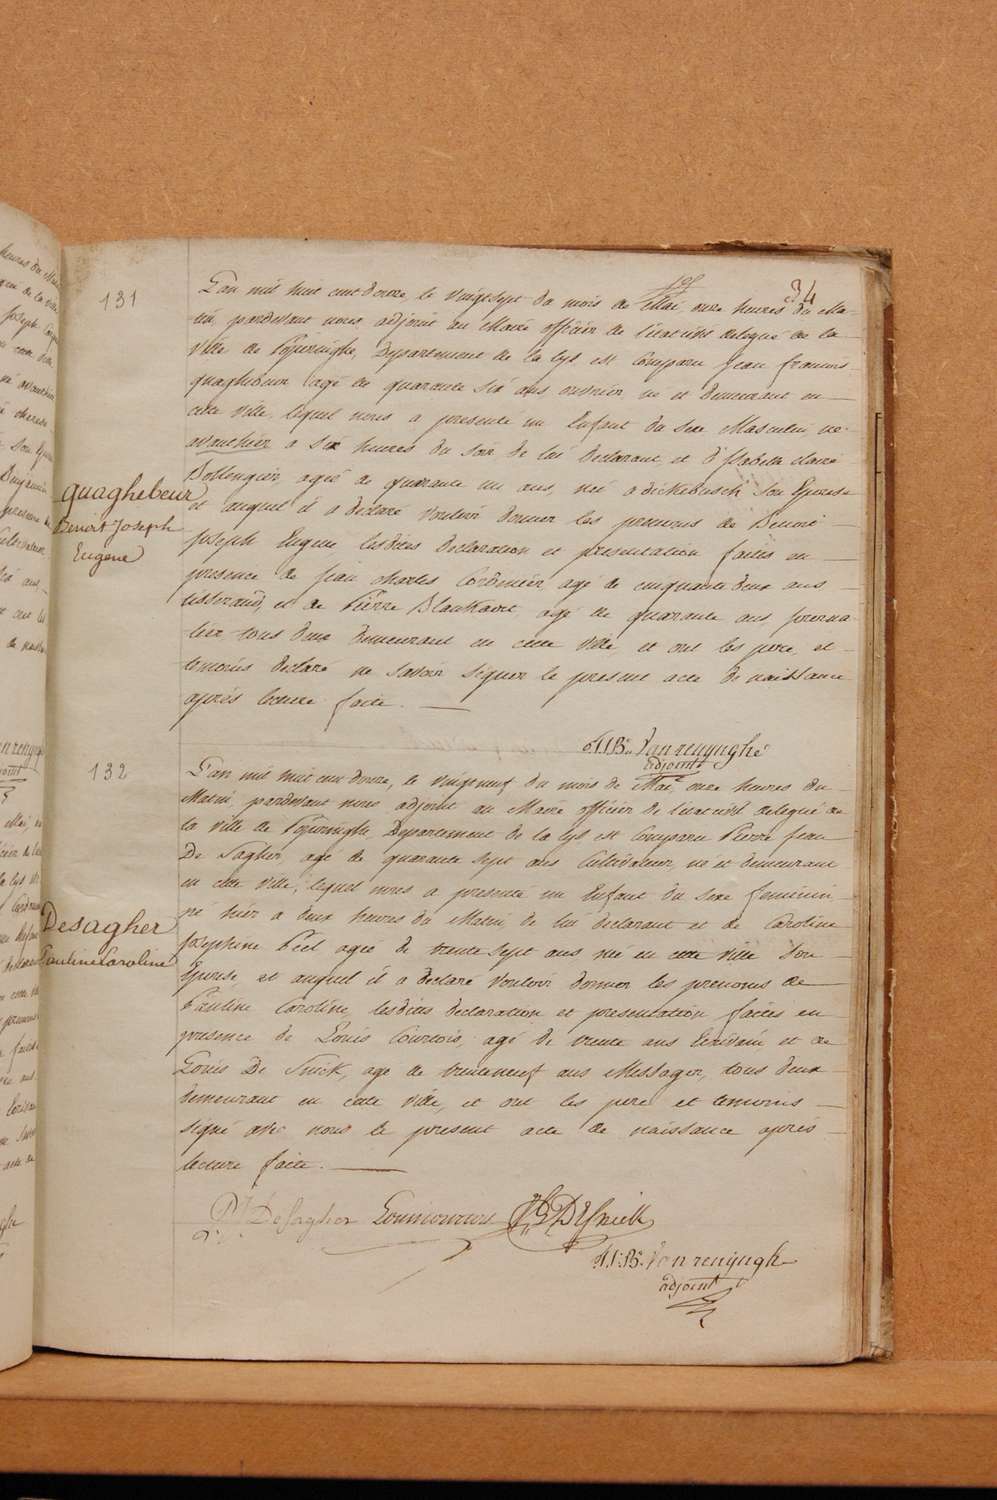 34
131
L'an mil huit cent douze, le vingtsept du mois de Mai, onze heures du Ma-
tin, pardevant nous adjoint au Maire officier de l'etat civil delegué de la
ville de Poperinghe, Departement de la Lys, est comparu Jean francois
quaghebeur agé de quarante six ans ouvrier né et demeurant en
cette ville, lequel nous a presenté un Enfant du sexe Masculin né
avanthier a six heures du soir de lui declarant et d'Isabelle claire
Bollengier, agée de quarante un ans, née a dickebusch son Epouse
et auquel il a declaré vouloir donner les prenoms de Benoit
Joseph Eugene lesdites declaration et presentation faites en
presence de Jean charles Cordenier, agé de cinquante deux ans
tisserand, et de Pierre Blanckaert agé de quarante ans journa-
lier tous deux demeurant en cette ville et ont les pere, et
temoins declaré ne savoir signer le present acte de naissance
après lecture faite.
quaghebeur
Benoit Joseph
Eugene
F.J.Bte. Vanrenynghe
adjoint
132
L'an mil huit cent douze, le vingtneuf du mois de Mai, onze heures du
Matin, pardevant nous adjoint au Maire officier de l'etat civil delegué de
la ville de Poperinghe Departement de la Lys, est comparu Pierre Jean
De Sagher, agé de quarante sept ans Cultivateur, né et demeurant
en cette ville, lequel nous a presenté un Enfant du sexe feminin
né hier a deux heures du Matin de lui declarant et de Caroline
Josephine Péel agée de trente sept ans née en cette ville son
Epouse, et auquel il a declaré vouloir donner les prenoms de
Pauline Caroline, lesdites declaration et presentation faites en
presence de Louis Courtois, agé de trente ans Ecrivain et de
Louis De Snick, agé de trenteneuf ans Messager, tous deux
demeurant en cette ville, et ont les pere et temoins
signé avec nous le present acte de naissance après
lecture faite.
Desagher
Pauline Caroline
P J DeSagher Louis Courtois L DeSnick
F.J.Bte. Vanrenynghe
adjoint